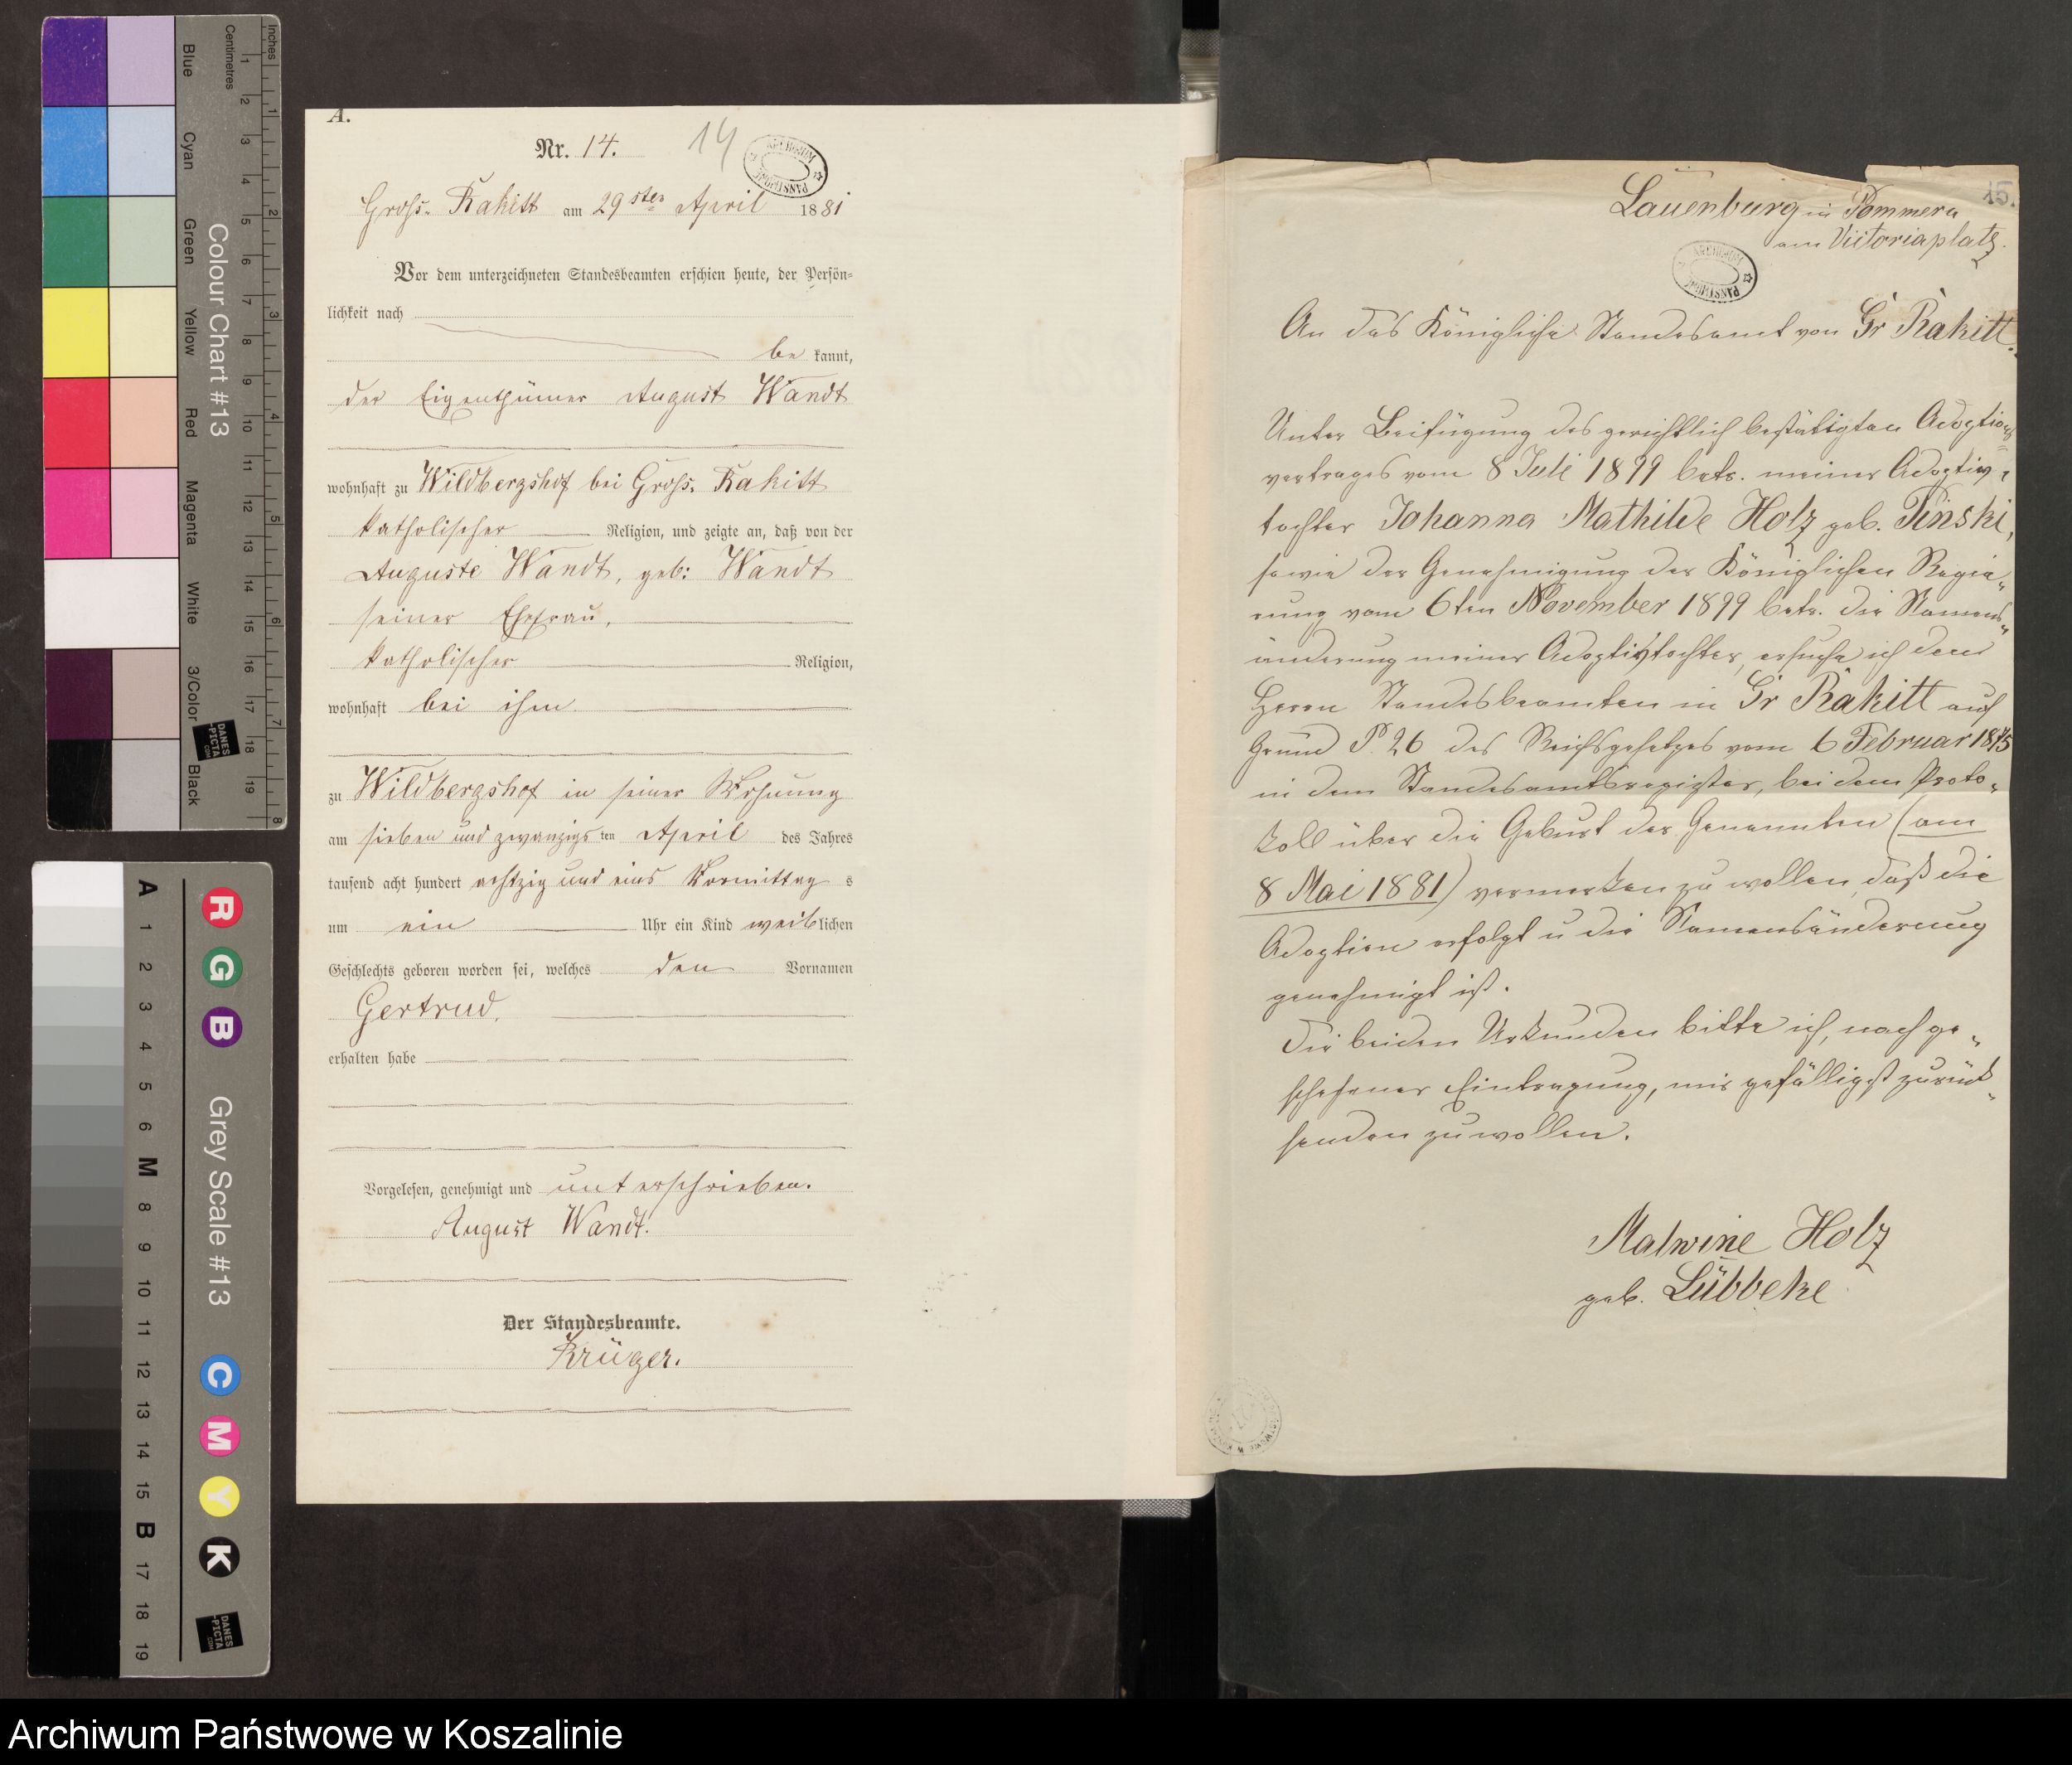 A.
Nr. 14.
14
Gross. Rakitt am 29sten April 1881
Vor dem unterzeichneten Standesbeamten erschien heute, der Persön-
lichkeit nach
be kannt,
der Eigenthümer August Wandt
wohnhaft zu Wildbergshof bei Gross. Rakitt
katholischer Religion, und zeigte an, daß von der
Auguste Wandt, geb: Wandt
seiner Ehefrau,
katholischer Religion,
wohnhaft bei ihm
zu Wildbergshof in seiner Wohnung
am sieben und zwanzigs ten April des Jahres
tausend acht hundert achtzig und eins Vormittag s
um ein Uhr ein Kind weib lichen
Geschlechts geboren worden sei, welches den Vornamen
Gertrud.
erhalten habe
Vorgelesen, genehmigt und unterschrieben.
August Wandt.
Der Standesbeamte.
Krüger.
15.
Lauenburg in Pommern
am Viktoriaplatz.
An das Königliche Standesamt von Gr Rakitt.
Unter Beifügung des gerichtlich bestätigten Adoptions=
vertrages vom 8 Juli 1899 betr. meiner Adoptiv-
tochter Johanna Mathilde Holz geb. Pinski,
sowie der Genehmigung der Königlichen Regie-
rung vom 6ten November 1899 betr. die Namens-
änderung meiner Adoptivtochter, ersuche ich den
Herrn Standesbeamten in Gr Rakitt auf
Grund P. 26 des Reichsgesetzes vom 6 Februar 1875
in dem Standesamtsregister, bei dem Proto-
koll über die Geburt der Genannten (am
8 Mai 1881) vermerken zu wollen, daß die
Adoption erfolgt u die Namensänderung
genehmigt ist.
Die beiden Urkunden bitte ich, nach ge-
schehener Eintragung, mir gefälligst zurück-
senden zu wollen.
Malwine Holz
geb. Lübbeke
Inches
Centimetres
Colour Chart #13
Blue
Cyan
Green
Yellow
Red
Magenta
White
3/Color
Black
DANES
-PICTA
.COM
Grey Scale #13
A 1 2 3 4 5 6 M 8 9 10 11 12 13 14 15 B 17 18 19
R
G
B
C
M
Y
K
DANES
-PICTA
.COM
Archiwum Państwowe w Koszalinie